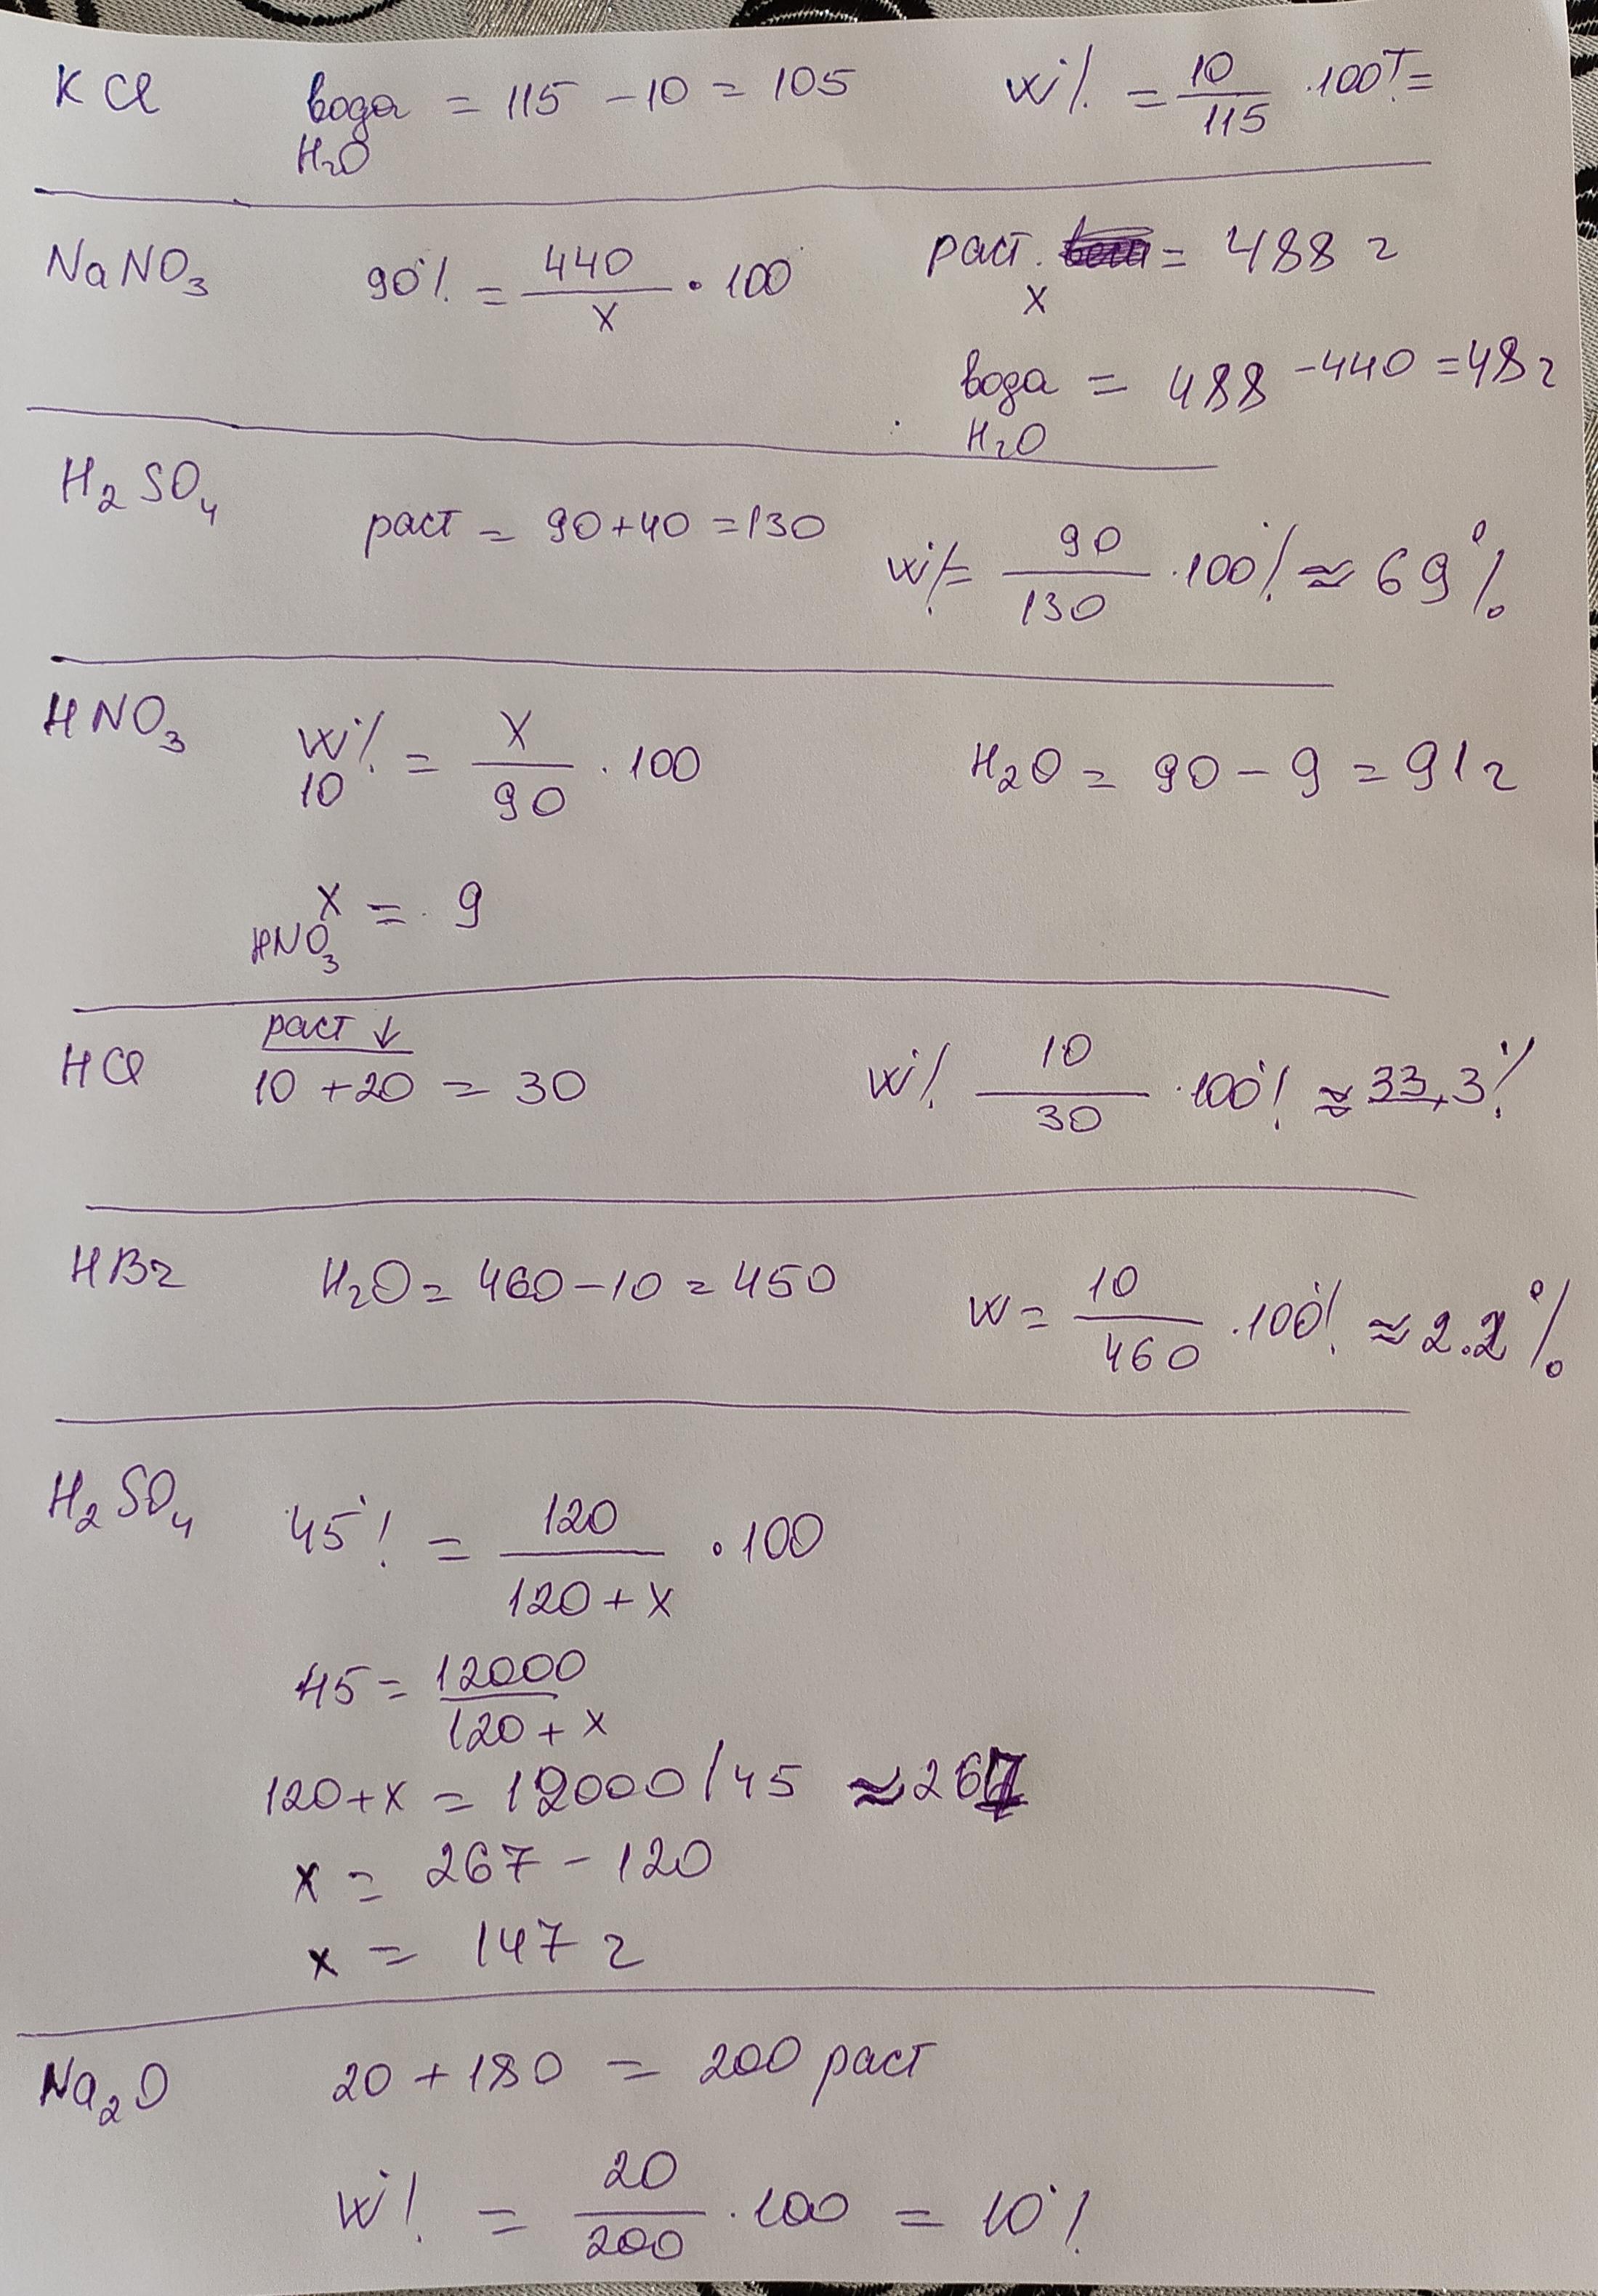 KCl вода = 115 - 10 = 105 W% = 10/115 · 100% =
H₂O
NaNO₃ 90% = 440/x · 100 раст. = 488 г
x
вода = 488 - 440 = 48 г
H₂O
H₂SO₄ раст = 90 + 40 = 130 W% = 90/130 · 100% ≈ 69%
HNO₃ W% = x/90 · 100 H₂O = 90 - 9 = 91 г
10
x = 9
HNO₃
раст ↓
HCl 10 + 20 = 30 W% 10/30 · 100% ≈ 33,3%
HBr H₂O = 460 - 10 = 450 W = 10/460 · 100% ≈ 2.2%
H₂SO₄ 45% = 120/(120 + x) · 100
45 = 12000/(120 + x)
120 + x = 12000/45 ≈ 267
x = 267 - 120
x = 147 г
Na₂O 20 + 180 = 200 раст
W% = 20/200 · 100 = 10%